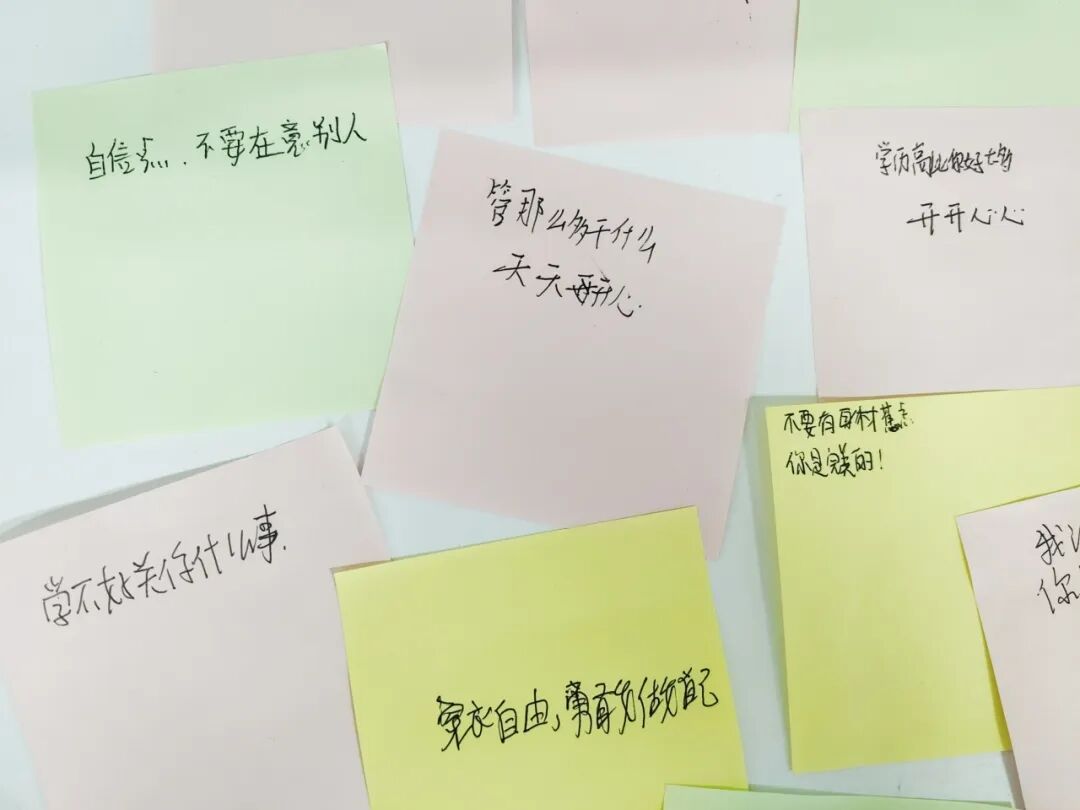 自信点,不要在意别人
管那么多干什么
天天要开心.
学历高比你好太多
开开心心
不要有身材焦虑
你是完美的!
学不好关你什么事.
穿衣自由,勇敢做自己
我
你